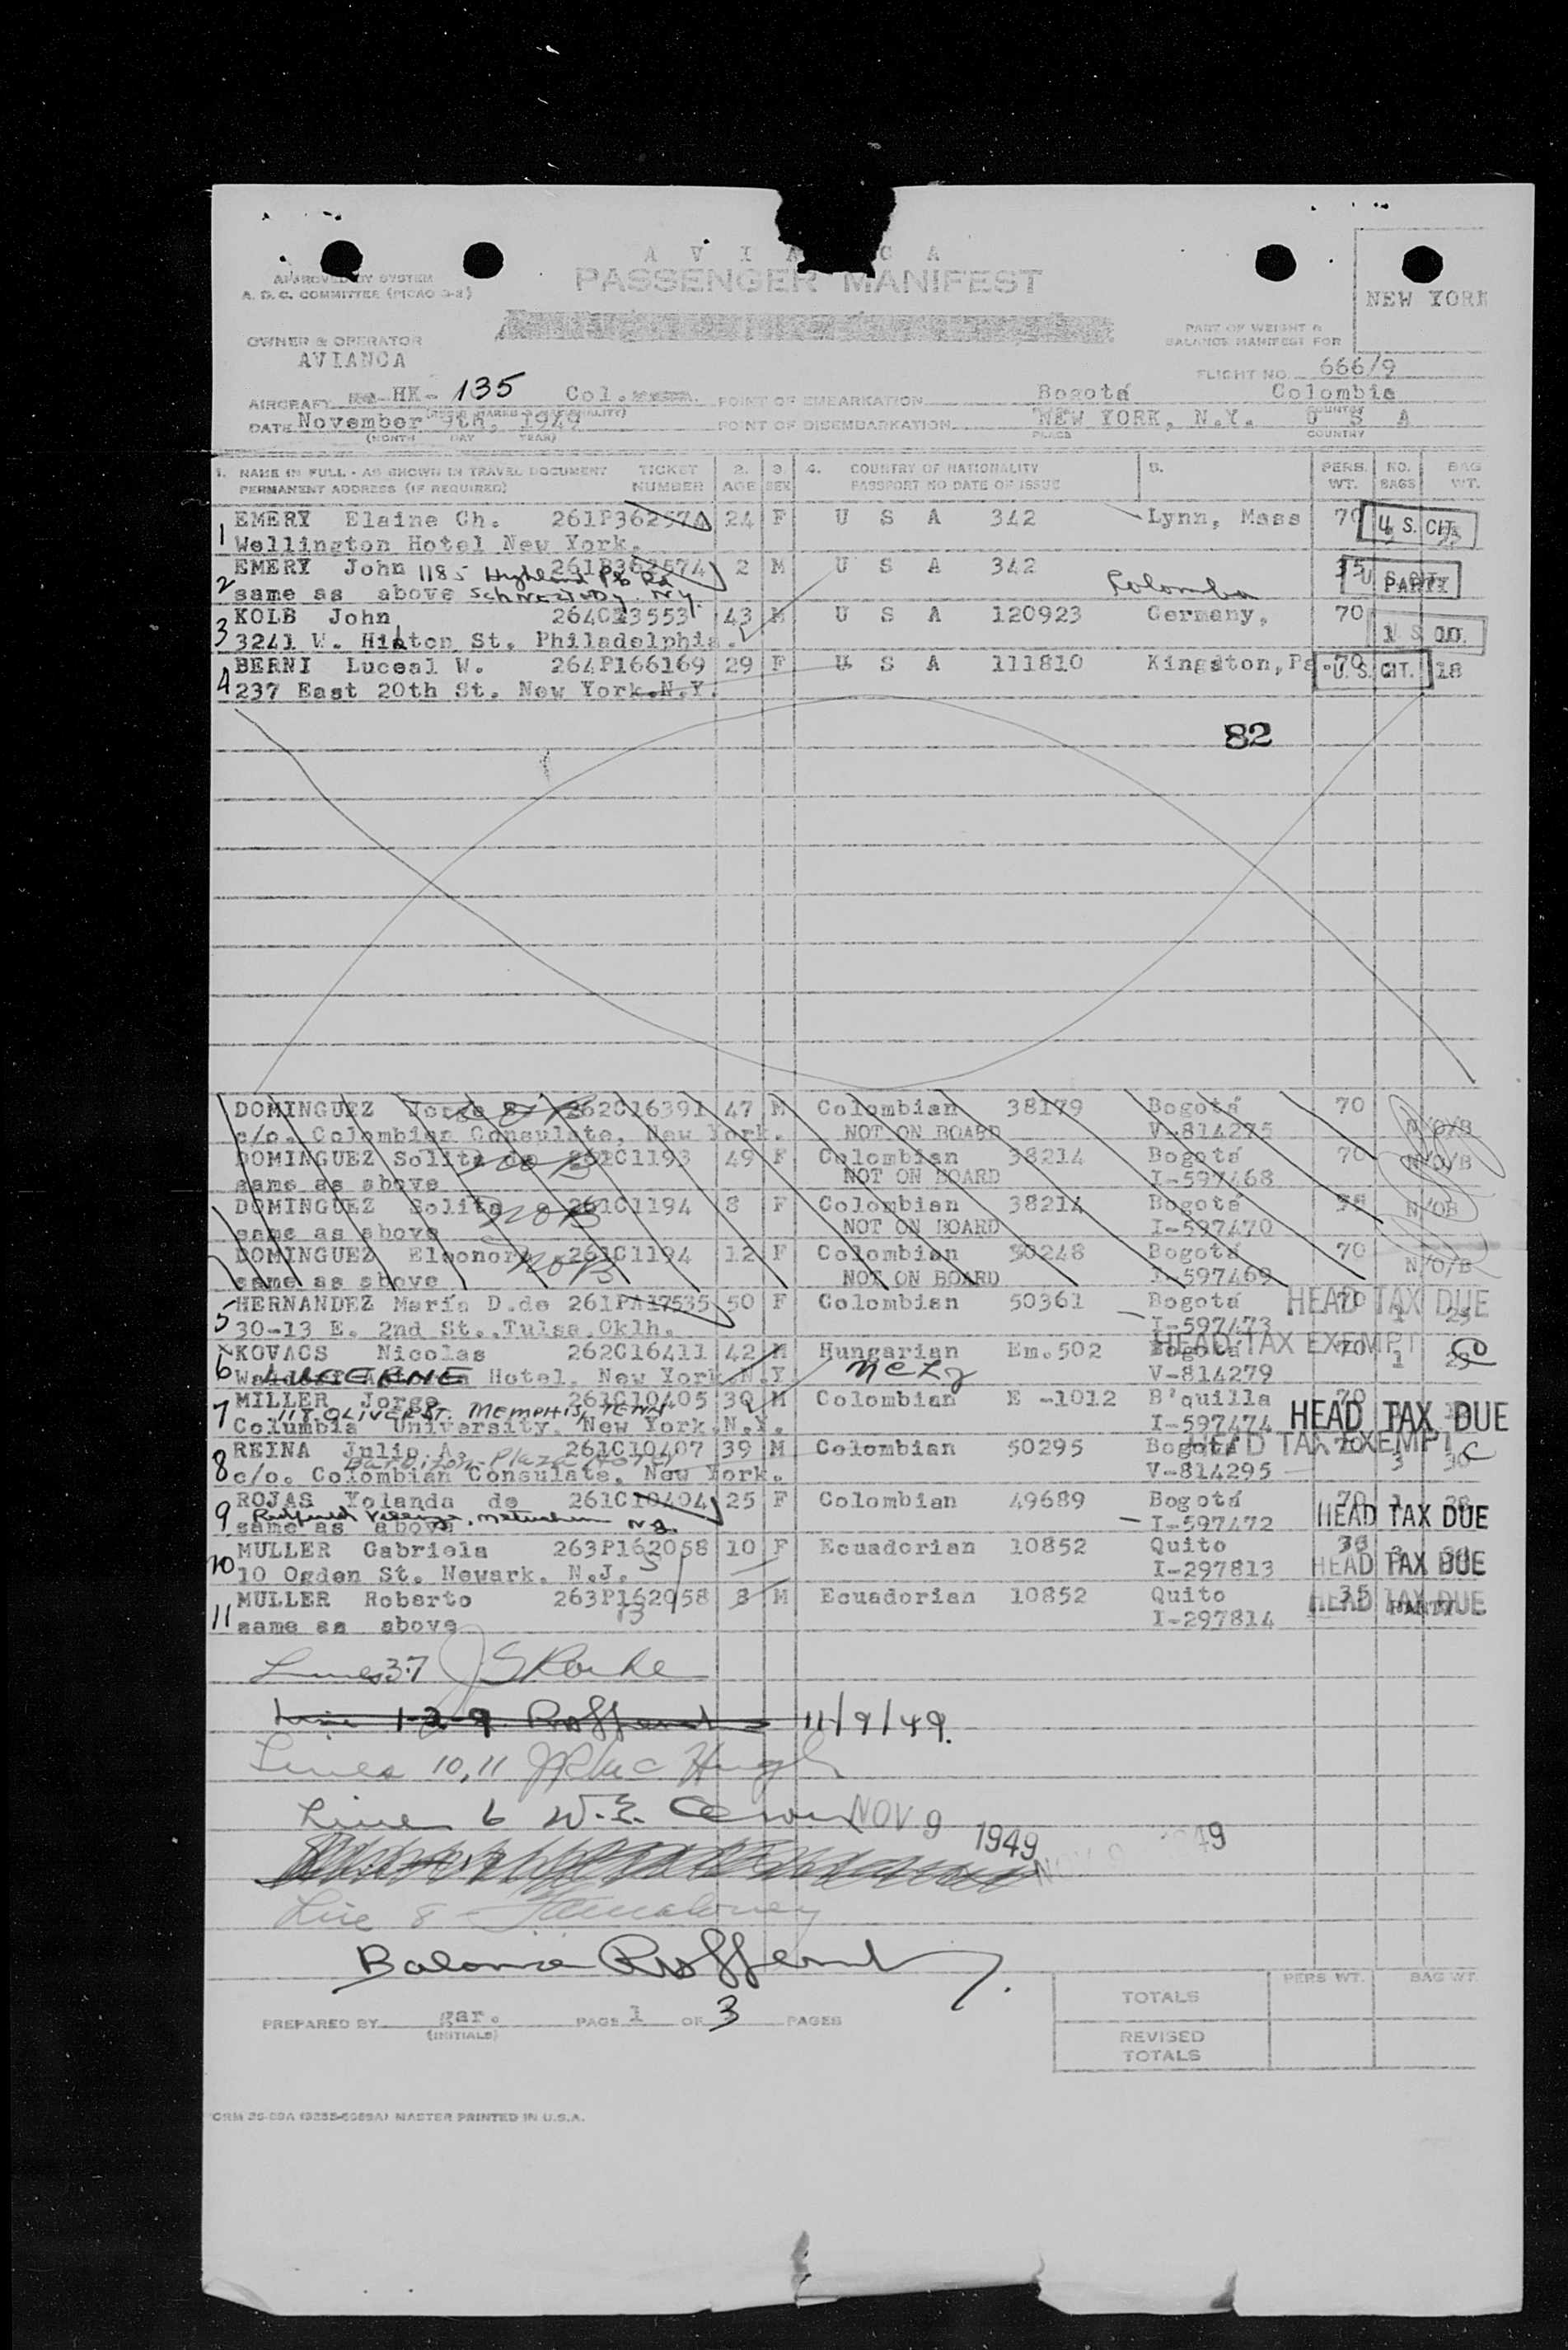 A V I A C A
PASSENGER MANIFEST
APPROVED BY SYSTEM
A. D. C. COMMITTEE (PICAO 3-8)
NEW YORK
OWNER & OPERATOR
AVIANCA
PART OF WEIGHT &
BALANCE MANIFEST FOR
FLIGHT NO. 666/9
AIRCRAFT HK- 135 Col. POINT OF EMBARKATION Bogotá Colombia
DATE November 9th, 1949 POINT OF DISEMBARKATION NEW YORK, N.Y. U S A
(MONTH DAY YEAR) PLACE COUNTRY
1. NAME IN FULL - AS SHOWN IN TRAVEL DOCUMENT TICKET 2. 3. 4. COUNTRY OF NATIONALITY 5. PERS. NO. BAG
PERMANENT ADDRESS (IF REQUIRED) NUMBER AGE SEX PASSPORT NO DATE OF ISSUE WT. BAGS WT.
1 EMERY Elaine Ch. 261P362574 24 F U S A 342 Lynn, Mass 70 U.S. CIT.
Wellington Hotel New York.
2 EMERY John 261P362574 2 M U S A 342 Colombia 35 PARTY
1185 Highland Pk Rd
same as above Schnectady. Ny.
3 KOLB John 264C23553 43 M U S A 120923 Germany, 70
3241 W. Hilton St. Philadelphia.
4 BERNI Luceal W. 264P166169 29 F U S A 111810 Kingston, Pa. 70 U.S. CIT. 18
237 East 20th St. New York.N.Y.
82
DOMINGUEZ Jorge 262C16391 47 M Colombian 38179 Bogotá 70 N/O/B
c/o. Colombian Consulate, New York. NOT ON BOARD V-814275
DOMINGUEZ Solita de NOB 261C1193 49 F Colombian 38214 Bogotá 70 N/O/B
same as above NOT ON BOARD I-597468
DOMINGUEZ Solita NOB 261C1194 8 F Colombian 38214 Bogotá N/OB
same as above NOT ON BOARD I-597470
DOMINGUEZ Eleonora NOB 261C1194 12 F Colombian 50248 Bogotá 70 N/O/B
same as above NOT ON BOARD I-597469
5 HERNANDEZ María D.de 261PA17535 50 F Colombian 50361 Bogotá 70 HEAD TAX DUE
30-13 E. 2nd St.,Tulsa.Oklh. I-597473
HEAD TAX EXEMPT
6 KOVACS Nicolas 262C16411 42 M Hungarian Em.502 Bogotá 70 1
LUCERNE Hotel. New York N.Y. V-814279
7 MILLER Jorge 261C10405 30 M Colombian E -1012 B'quilla 70
118 OLIVER ST. MEMPHIS, TENN
Columbia University. New York.N.Y. I-597474 HEAD TAX DUE
8 REINA Julio A. 261C10407 39 M Colombian 50295 Bogotá 70 HEAD TAX EXEMPT
Barbizon-Plaza Hotel
c/o. Colombian Consulate, New York. V-814295 3 30
9 ROJAS Yolanda de 261C10404 25 F Colombian 49689 Bogotá 70
Village, Metuchen NJ
same as above I-597472 HEAD TAX DUE
10 MULLER Gabriela 263P162058 10 F Ecuadorian 10852 Quito
10 Ogden St. Newark. N.J. I-297813 HEAD TAX DUE
11 MULLER Roberto 263P162058 8 M Ecuadorian 10852 Quito 35 HEAD TAX DUE
same as above I-297814 PARTY
Lines 3.7
Line 1-2-9 11/9/49.
Lines 10,11
Line 6 W.E. NOV 9 1949
Line 8
Balance
PREPARED BY gar. PAGE 1 OF 3 PAGES
(INITIALS)
PERS WT. BAG WT.
TOTALS
REVISED
TOTALS
MASTER PRINTED IN U.S.A.